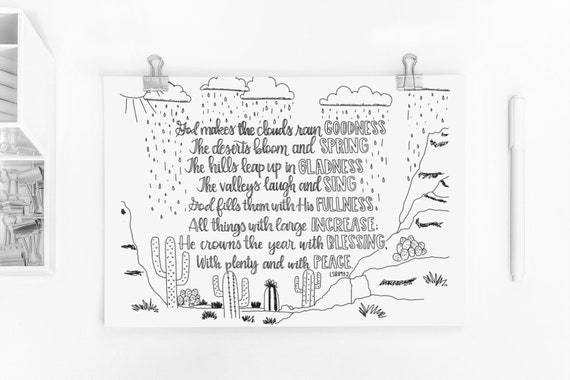 God makes the clouds rain GOODNESS
The deserts bloom and SPRING
The hills leap up in GLADNESS
The valleys laugh and SING
God fills them with His FULLNESS
All things with large INCREASE;
He crowns the year with BLESSING,
With plenty and with PEACE.